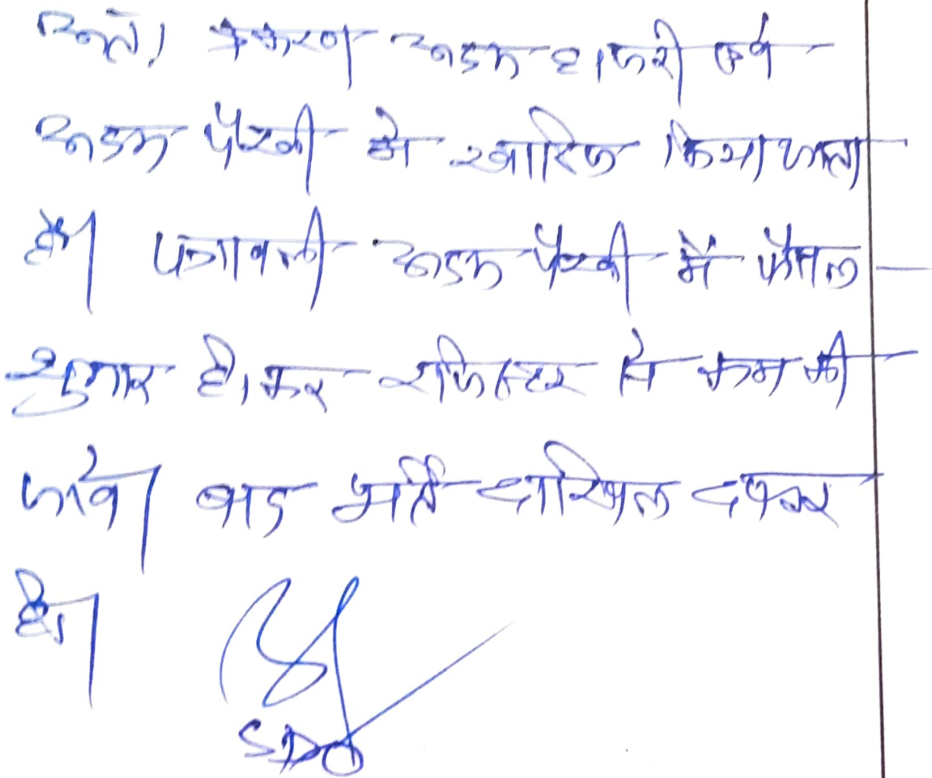 अतः। प्रकरण अदम हाजरी एवं
अदम पैरवी में खारिज किया जाता
है। पत्रावली अदम पैरवी में फैसल
शुमार होकर रजिस्टर से कम की
जावे। बाद भर्त दाखिल दफ्तर
हो।
SDO